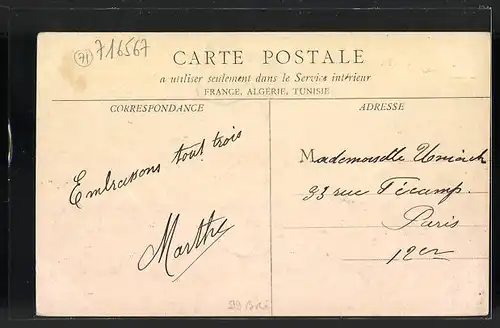 71 716567
CARTE POSTALE
a utiliser seulement dans le Service intérieur
FRANCE, ALGÉRIE, TUNISIE
CORRESPONDANCE
Embrassons tout trois
Marthe
ADRESSE
Mademoiselle
33 rue Fécamp.
Paris
12er